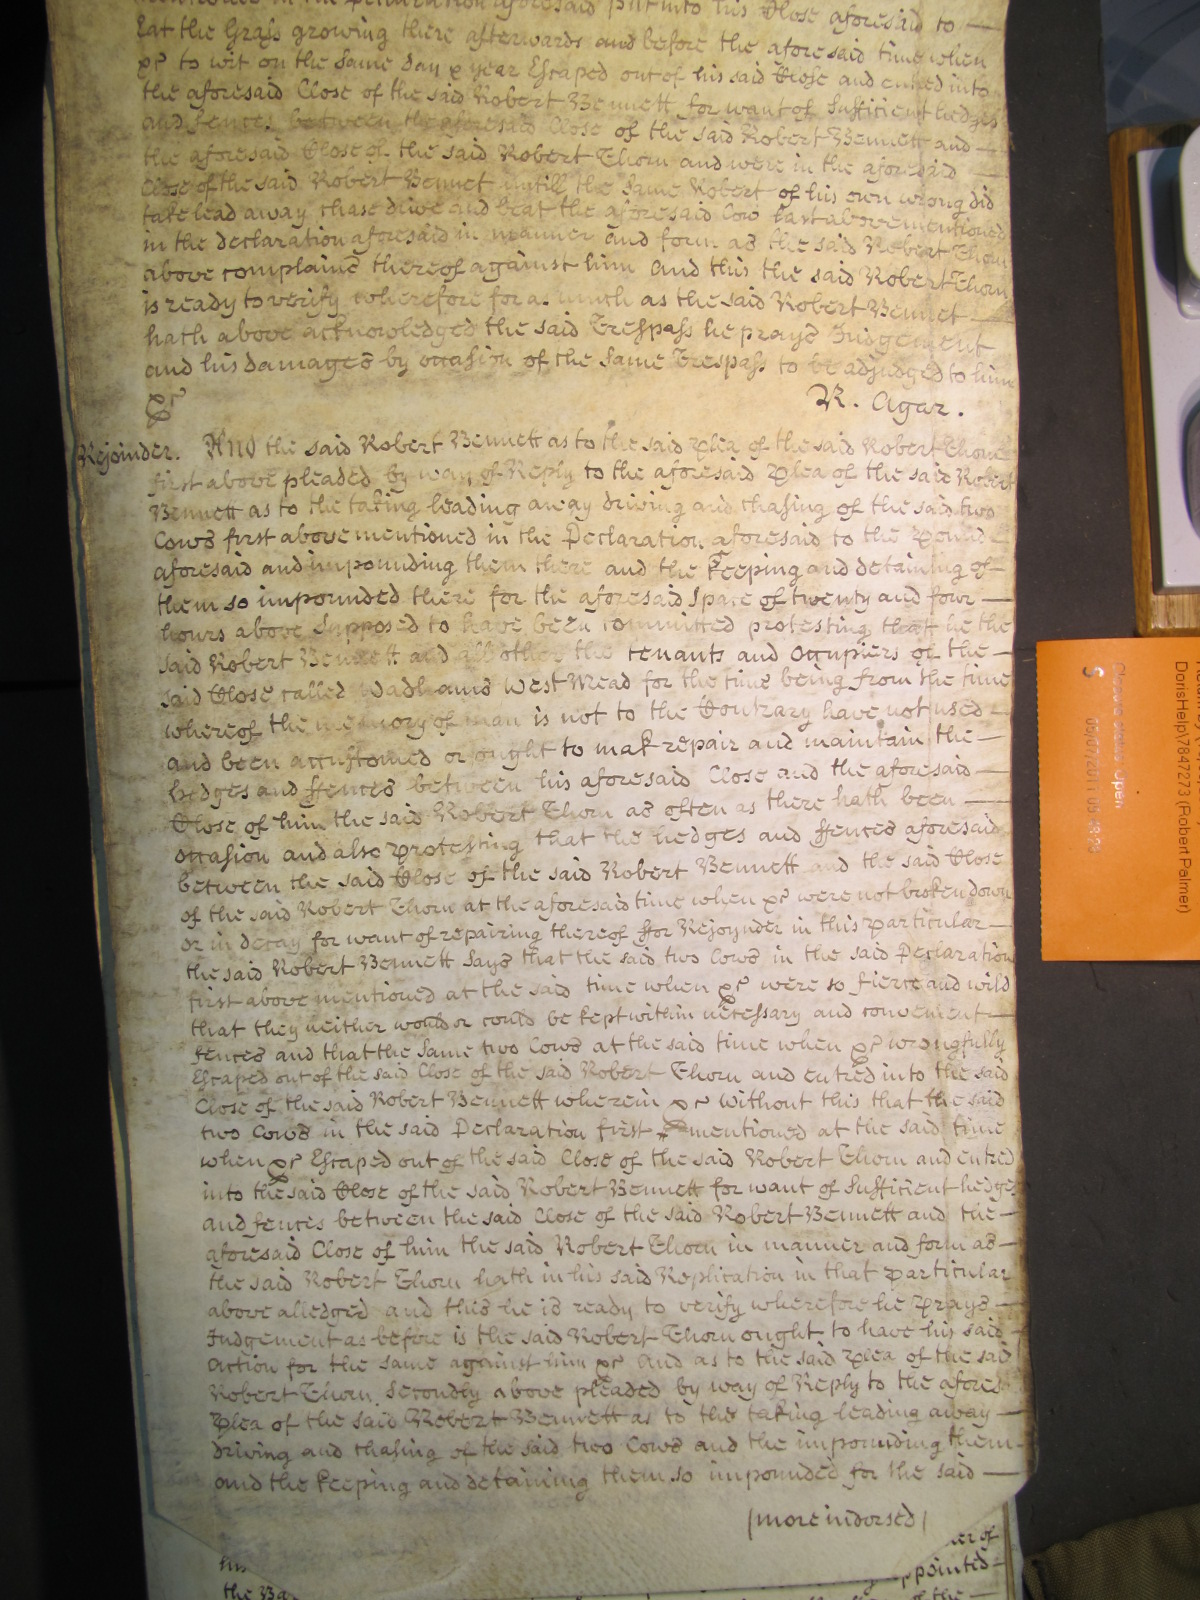 mentioned in the Declaration aforesaid put into his Close aforesaid to
Eat the Grass growing there afterwards and before the aforesaid time when
&c to wit on the same day & year Escaped out of his said Close and entred into
the aforesaid Close of the said Robert Bennett for want of sufficient hedges
and fences between the aforesaid Close of the said Robert Bennett and
the aforesaid Close of the said Robert Thorn and were in the aforesaid
Close of the said Robert Bennet untill the same Robert of his own wrong did
take lead away chase drive and beat the aforesaid Cow last abovementioned
in the declaration aforesaid in manner and form as the said Robert Thorn
above complains thereof against him And this the said Robert Thorn
is ready to verify wherefore for as much as the said Robert Bennet
hath above acknowledged the said Trespass he prays Judgement
and his damages by occasion of the same Trespass to be adjudged to him
&c
R. Agar.
Rejoinder. And the said Robert Bennett as to the said plea of the said Robert Thorn
first above pleaded by way of Reply to the aforesaid Plea of the said Robert
Bennett as to the taking leading away driving and chasing of the said two
Cows first above mentioned in the Declaration aforesaid to the Pound
aforesaid and impounding them there and the keeping and detaining of
them so impounded there for the aforesaid space of twenty and four
hours above supposed to have been committed protesting that he the
said Robert Bennett and all other the tenants and Occupiers of the
said Close called Wadhams West Mead for the time being from the time
whereof the memory of man is not to the Contrary have not used
and been accustomed or ought to make repair and maintain the
hedges and ffences between his aforesaid Close and the aforesaid
Close of him the said Robert Thorn as often as there hath been
occasion and also Protesting that the hedges and ffences aforesaid
between the said Close of the said Robert Bennett and the said Close
of the said Robert Thorn at the aforesaid time when &c were not broken down
or in decay for want of repairing thereof ffor Rejoynder in this particular
the said Robert Bennett says that the said two Cows in the said Declaration
first above mentioned at the said time when &c were so fierce and wild
that they neither would or could be kept within necessary and convenient
fences and that the same two Cows at the said time when &c wrongfully
Escaped out of the said Close of the said Robert Thorn and entred into the said
Close of the said Robert Bennett wherein &c Without this that the said
two Cows in the said Declaration first mentioned at the said time
when &c Escaped out of the said Close of the said Robert Thorn and entred
into the said Close of the said Robert Bennett for want of sufficient hedges
and fences between the said Close of the said Robert Bennett and the
aforesaid Close of him the said Robert Thorn in manner and form as
the said Robert Thorn hath in his said Replication in that particular
above alledged and this he is ready to verify wherefore he prays
Judgement as before is the said Robert Thorn ought to have his said
Action for the same against him &c And as to the said plea of the said
Robert Thorn Secondly above pleaded by way of Reply to the afores
Plea of the said Robert Bennett as to the taking leading away
driving and chasing of the said two Cows and the impounding them
and the keeping and detaining them so impounded for the said
(more indorsed)
of
ppointed
the
of the
DorisHelp\7847273 (Robert Palmer)